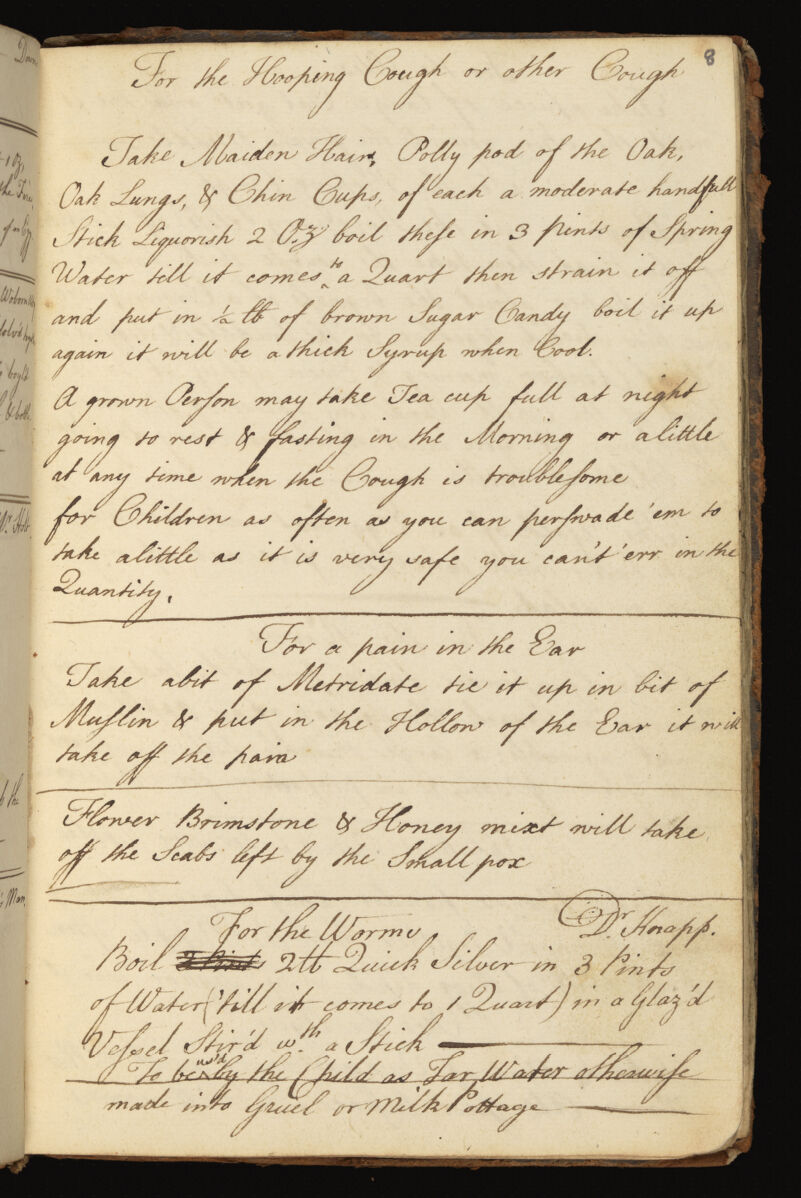 8
For the Hooping Cough or other Cough
Take Maiden Hair, Polly pod of the Oak,
Oak Lungs, & Chin Cups, of each a moderate handfull
Stick Liquorish 2 Oz boil these in 3 pints of Spring
Water till it comes to a Quart then strain it off
and put in ½ lb of brown Sugar Candy boil it up
again it will be a thick Syrup when Cool.
A grown Person may take Tea cup full at night
going to rest & fasting in the Morning or alittle
at any time when the Cough is troublesome
for Children as often as you can perswade 'em to
take alittle as it is very safe you can't err in the
Quantity.
For a pain in the Ear
Take abit of Metridate tie it up in bit of
Muslin & put in the Hollow of the Ear it will
take off the pain
Flower Brimstone & Honey mixt will take
off the Scabs left by the Small pox
For the Worms Dr Knapp.
Boil 2 Pints 2 lb Quick Silver in 3 Pints
of Water ('till it comes to 1 Quart) in a Glaz'd
Vessel Stir'd wth a Stick
To be us'd by the Child as Far Water otherwise
made into Gruel or Milk Pottage